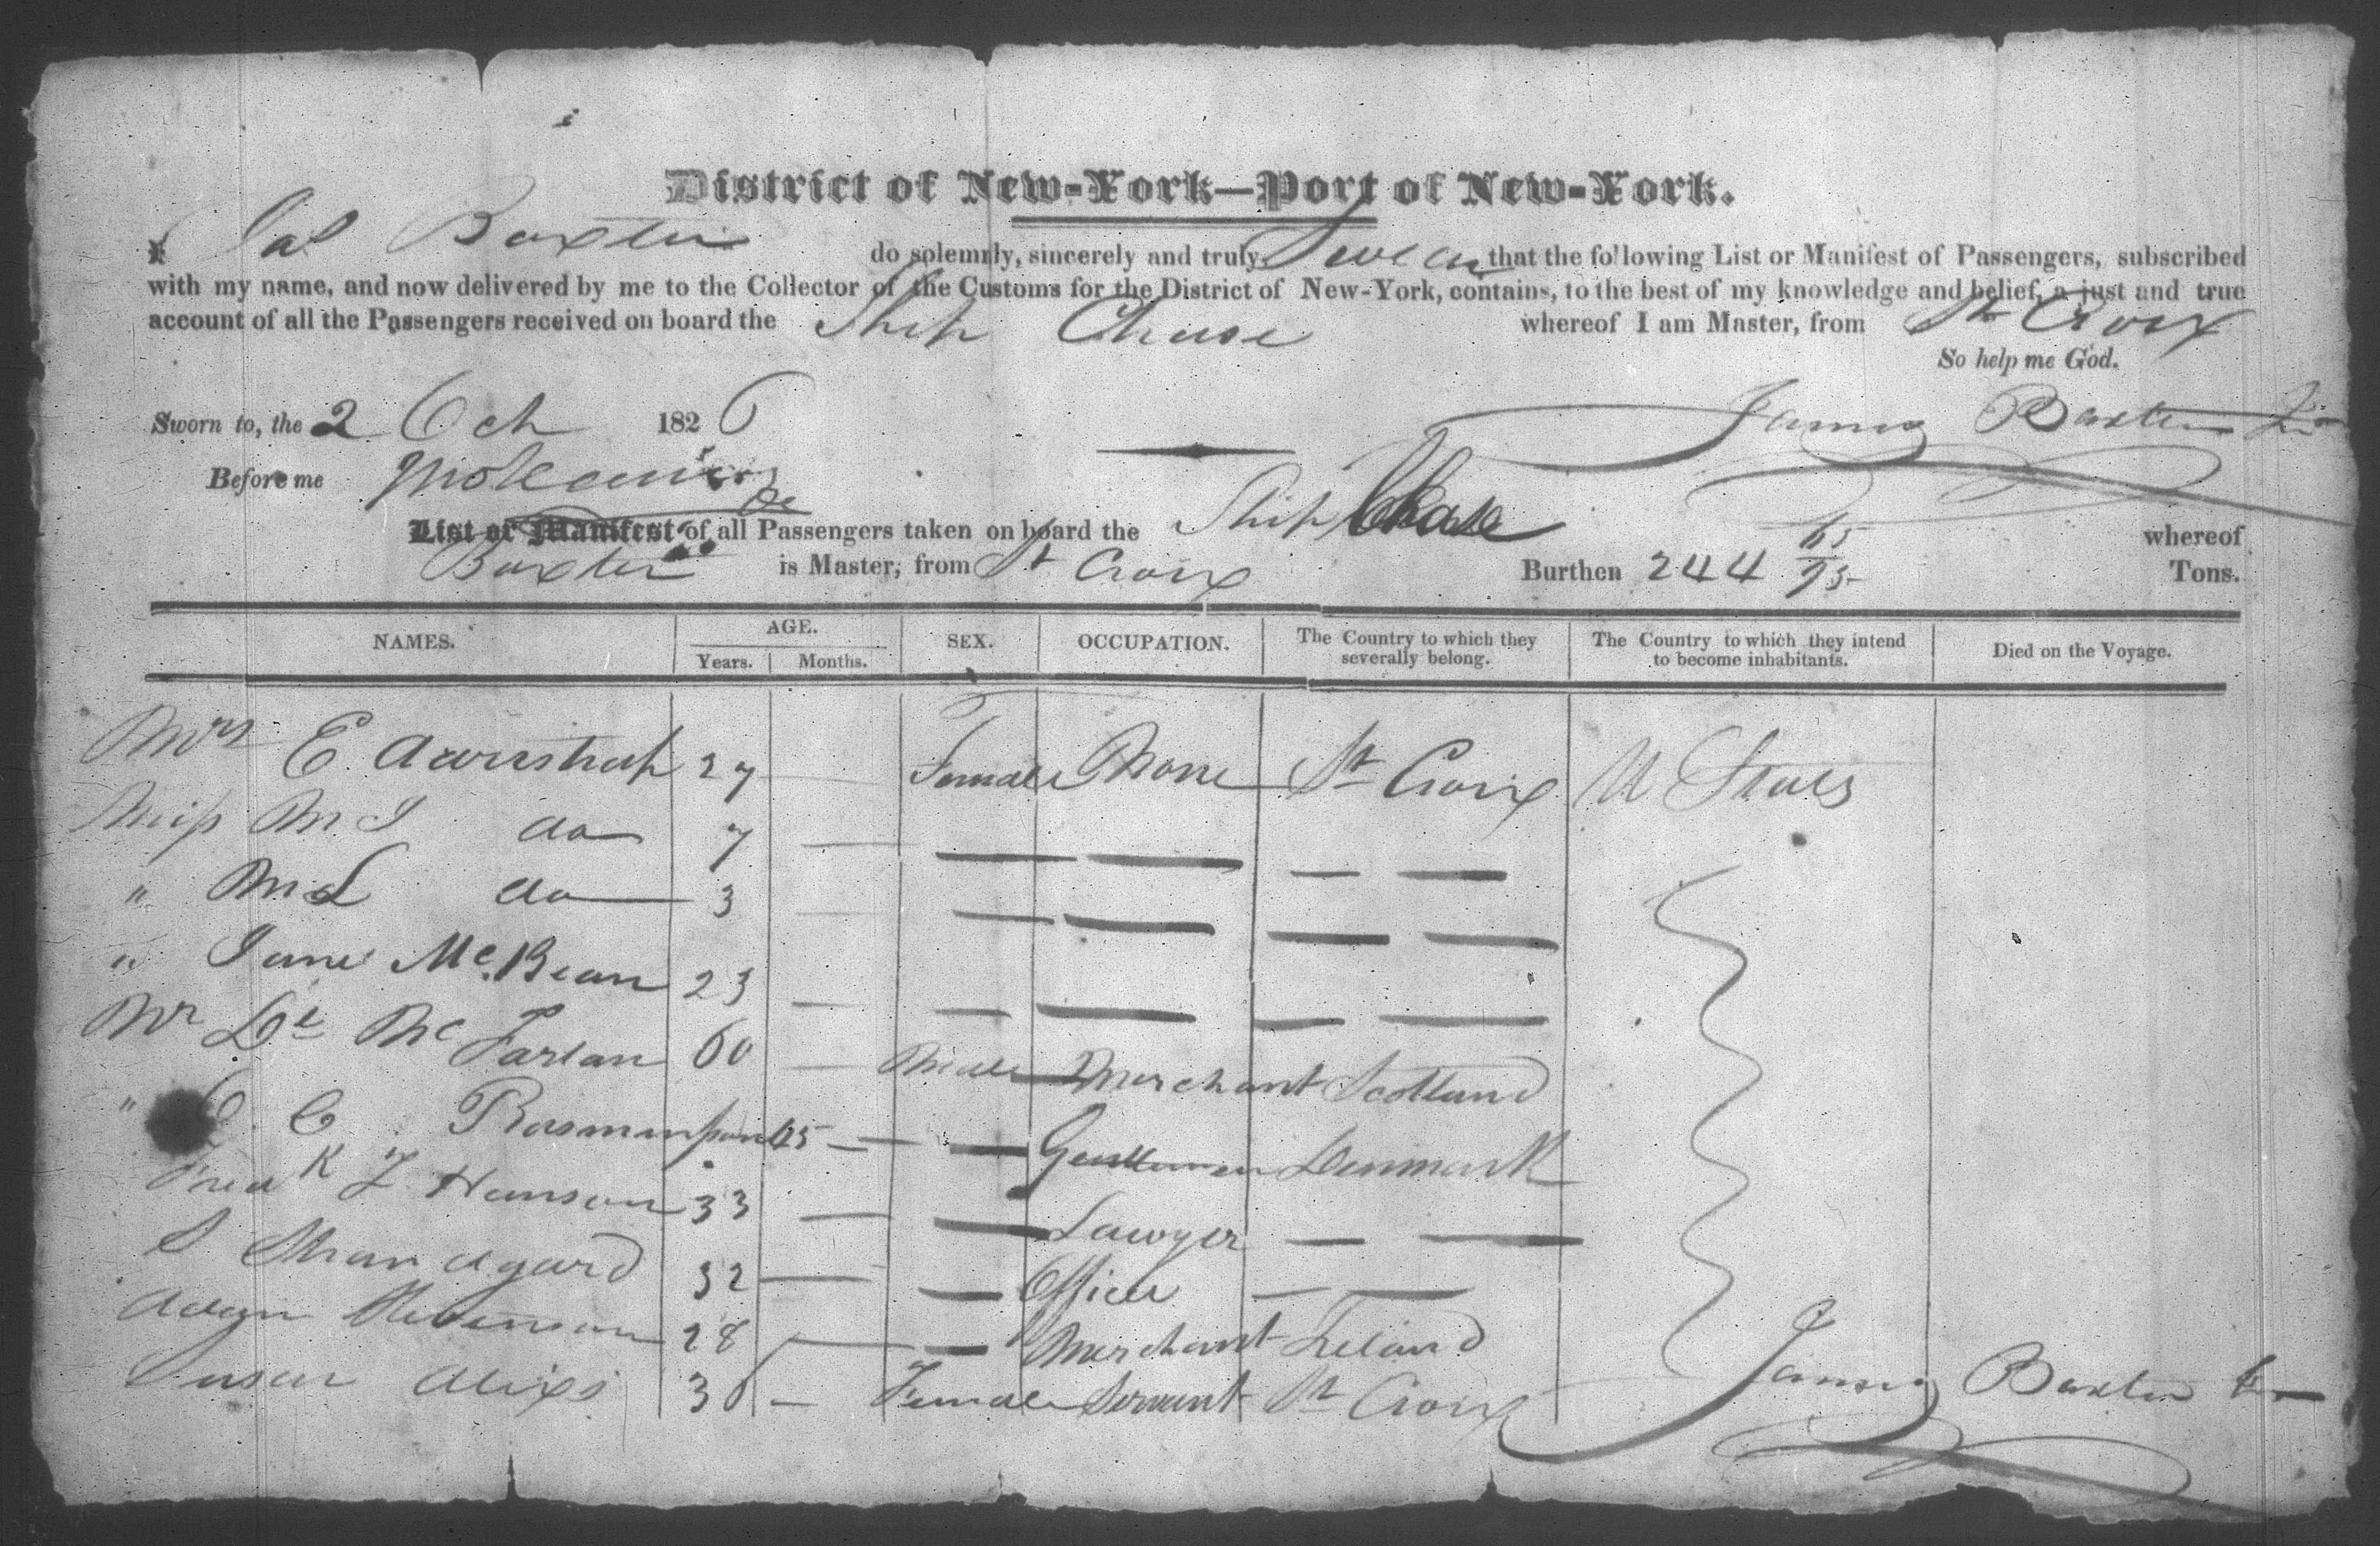 District of New-York—Port of New-York.
I Jas Baxter do solemnly, sincerely and truly Swear that the following List or Manifest of Passengers, subscribed
with my name, and now delivered by me to the Collector of the Customs for the District of New-York, contains, to the best of my knowledge and belief, a just and true
account of all the Passengers received on board the Ship Chase whereof I am Master, from St Croix
So help me God.
Sworn to, the 2 Oct 1826 James Baxter Jr
Before me
List or Manifest of all Passengers taken on board the Ship Chase whereof
Baxter is Master, from St Croix Burthen 244 65/95 Tons.
NAMES. AGE. Years. Months. SEX. OCCUPATION. The Country to which they severally belong. The Country to which they intend to become inhabitants. Died on the Voyage.
Mrs E 27 Female None St Croix U States
Miss M I do 7
" M L do 3
" Jane Mc.Bean 23
Mr Mc Farlan 60 Male Merchant Scotland
" C 45 Gentleman Denmark
Fredk Hanson 33 Lawyer
S 32 Officer
28 Merchant Ireland
Susan 30 Female Servant St Croix
James Baxter Jr